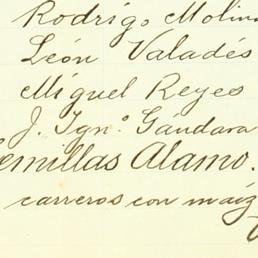 Rodrigo Molin
León Valadés
Miguel Reyes
J. Ignº Gándara
emillas Alamo.
carreros con maíz